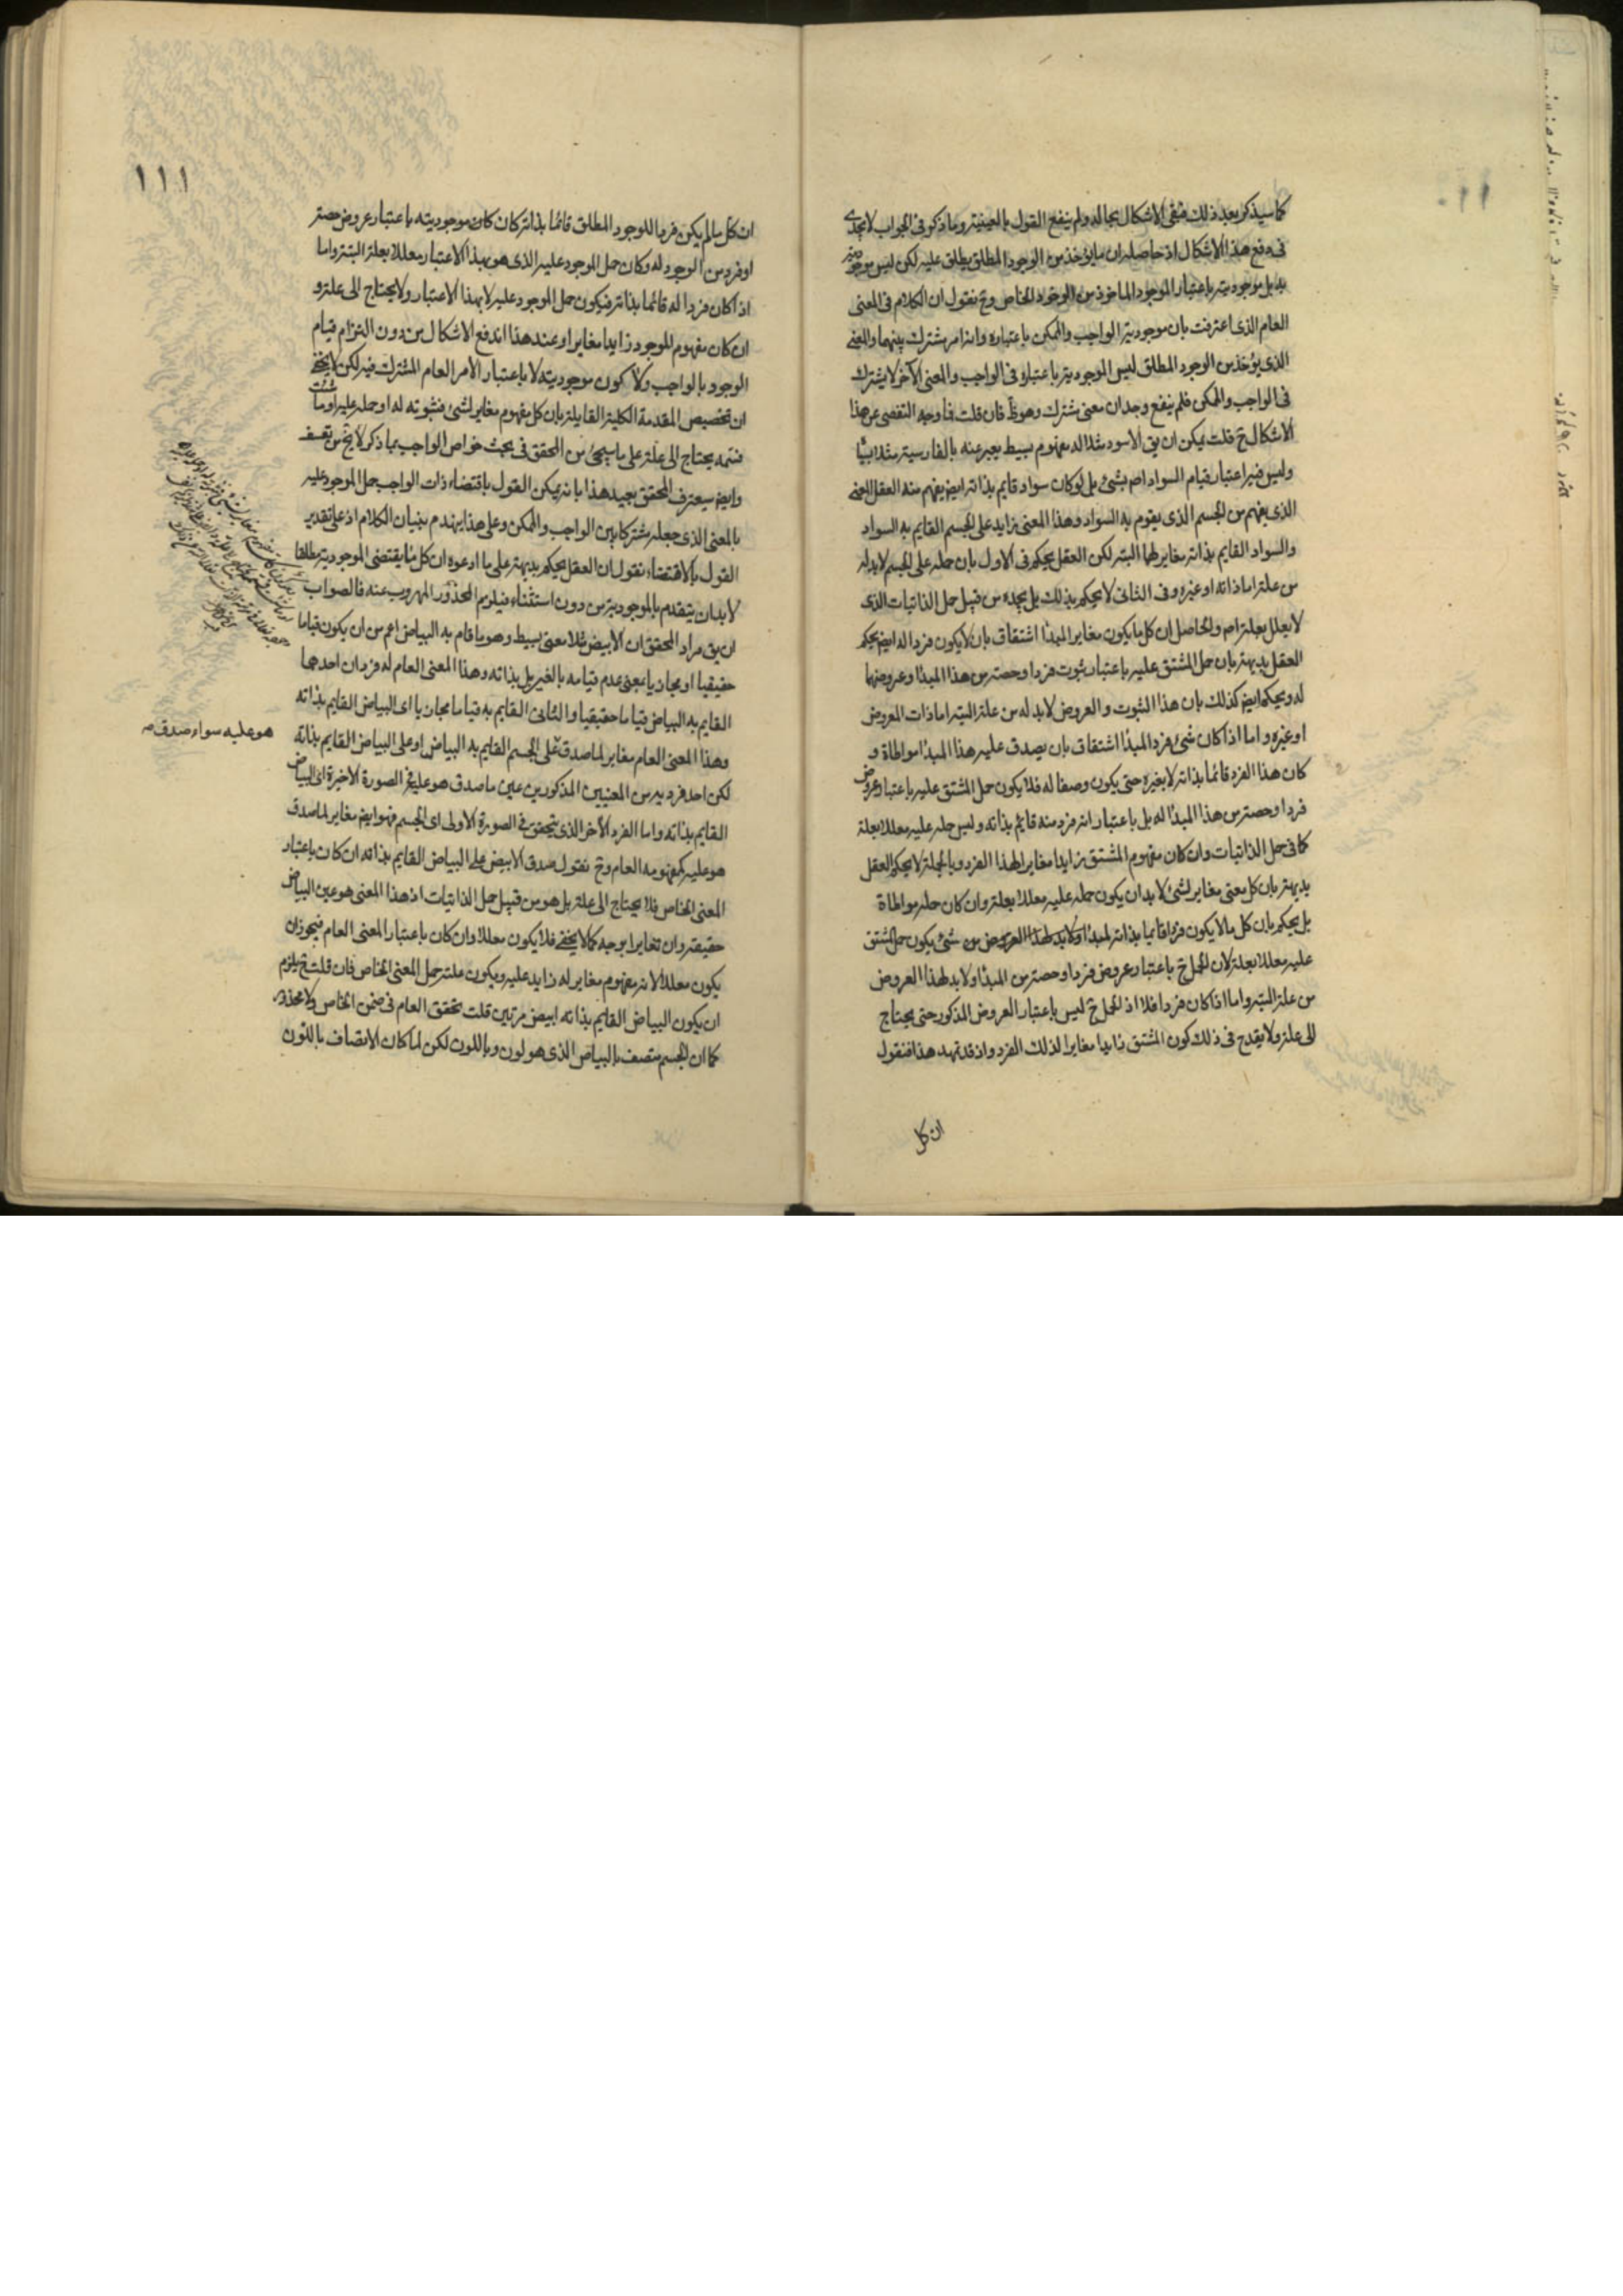 ١١٠
كما سيذكر بعد ذلك فبقى الاشكال بحاله ولم ينفع القول بالعينية وما ذكر فى الجواب لا يجدى
فى دفع هذا الاشكال اذ حاصله ان ما يؤخذ من الوجود المطلق يطلق عليه لكن ليس موجوديته
به بل موجوديته باعتبار الموجود الماخوذ من الوجود الخاص وح نقول ان الكلام فى المعنى
العام الذى اعترفت بان موجودية الواجب والممكن باعتباره وانه امر مشترك بينهما والمعنى
الذى يؤخذ من الوجود المطلق ليس الموجودية باعتباره فى الواجب والمعنى الآخر لا يشترك
فى الواجب والممكن فلم ينفع وجدان معنى مشترك وهو ظ فان قلت فما وجه التفصى عن هذا
الاشكال ح قلت يمكن ان يق الاسود مثلا له مفهوم بسيط يعبر عنه بالفارسية مثلا بسيا
وليس فيه اعتبار قيام السواد اصم بشئ بل لو كان سواد قايم بذاته ايض يفهم منه العقل المعنى
الذى يفهم من الجسم الذى يقوم به السواد وهذا المعنى زايد على الجسم القايم به السواد
والسواد القايم بذاته مغاير لهما البتة لكن العقل يحكم فى الاول بان حمله على الجسم لا بد له
من علة اما ذاته او غيره وفى الثانى لا يحكم بذلك بل يجده من قبيل حمل الذاتيات الذى
لا يعلل بعلة اصم والحاصل ان كل ما يكون مغاير المبدأ اشتقاق بان لا يكون فردا له ايض يحكم
العقل بديهة بان حمل المشتق عليه باعتبار ثبوت فرد او حصة من هذا المبدأ وعروضها
له ويحكم ايض كذلك بان هذا الثبوت والعروض لا بد له من علة البتة اما ذات المعروض
او غيره واما اذا كان شئ فرد المبدأ اشتقاق بان يصدق عليه هذا المبدأ مواطاة و
كان هذا الفرد قائما بذاته لا بغيره حتى يكون وصفا له فلا يكون حمل المشتق عليه باعتبار عروض
فرد او حصة من هذا المبدأ له بل باعتبار انه فرد منه قايم بذاته وليس حمله عليه معللا بعلة
كما فى حمل الذاتيات وان كان مفهوم المشتق زايدا مغايرا لهذا الفرد وبالجملة لا يحكم العقل
بديهة بان كل معنى مغاير لشئ لا بد ان يكون حمله عليه معللا بعلة وان كان حمله مواطاة
بل يحكم بان كل ما لا يكون فردا قايما بذاته لمبدأ ولا بد لهذا العروض من شئ يكون حمل المشتق
عليه معللا بعلة لان الحمل ح باعتبار عروض فرد او حصة من المبدأ ولا بد لهذا العروض
من علة البتة واما اذا كان فردا فلا اذ الحمل ح ليس باعتبار العروض المذكور حتى يحتاج
الى علة ولا يقدح فى ذلك كون المشتق زايدا مغايرا لذلك الفرد واذ قد تمهد هذا فنقول
ان كل
١١١
ان كل ما لم يكن فردا للوجود المطلق قائما بذاته كان كان موجوديته باعتبار عروض حصة
او فرد من الوجود له وكان حمل الموجود عليه الذى هو بهذا الاعتبار معللا بعلة البتة واما
اذا كان فردا له قائما بذاته فيكون حمل الموجود عليه لا بهذا الاعتبار ولا يحتاج الى علة و
ان كان مفهوم الموجود زايدا مغايرا وعند هذا اندفع الاشكال من دون التزام قيام
الوجود بالواجب ولا كون موجوديته لا باعتبار الامر العام المشترك فيه لكن لا يخفى
ان تخصيص المقدمة الكلية القايلة بان كل مفهوم مغاير لشئ فثبوته له او حمله عليه او ما شئت
فسمه يحتاج الى علة على ما سيجئ من المحقق فى بحث خواص الواجب بما ذكر لا يخ من تعسف
وايض سيعترف المحقق بعيد هذا بانه يمكن القول باقتضاء ذات الواجب حمل الموجود عليه
بالمعنى الذى جعله مشتركا بين الواجب والممكن وعلى هذا ينهدم بنيان الكلام اذ على تقدير
القول بالاقتضاء نقول ان العقل يحكم بديهة على ما ادعوه ان كل ما يقتضى الموجودية مطلقا
لا بد ان يتقدم بالموجودية من دون استثناء فيلزم المحذور المهروب عنه فالصواب
ان يق مراد المحقق ان الابيض مثلا معنى بسيط وهو ما قام به البياض اعم من ان يكون قياما
حقيقيا او مجازيا بمعنى عدم قيامه بالغير بل بذاته وهذا المعنى العام له فردان احدهما
القايم به البياض قياما حقيقيا والثانى القايم به قياما مجازيا اى البياض القايم بذاته
وهذا المعنى العام مغاير لما صدق على الجسم القايم به البياض او على البياض القايم بذاته
هو عليه سواء صدق صح
لكن احد فرديه من المعنيين المذكورين عين ما صدق هو عليه فى الصورة الاخيرة اى البياض
القايم بذاته واما الفرد الآخر الذى يتحقق فى الصورة الاولى اى الجسم فهو ايض مغاير لما صدق
هو عليه كمفهومه العام وح نقول صدق الابيض على البياض القايم بذاته ان كان باعتبار
المعنى الخاص فلا يحتاج الى علة بل هو من قبيل حمل الذاتيات اذ هذا المعنى هو عين البياض
حقيقة وان تغايرا بوجه كما لا يخفى فلا يكون معللا وان كان باعتبار المعنى العام فيجوز ان
يكون معللا لانه مفهوم مغاير له زايد عليه ويكون علته حمل المعنى الخاص فان قلت فح يلزم
ان يكون البياض القايم بذاته ابيض مرتين قلت تحقق العام فى ضمن الخاص ولا محذور
كما ان الجسم متصف بالبياض الذى هو لون وباللون لكن لما كان الاتصاف باللون